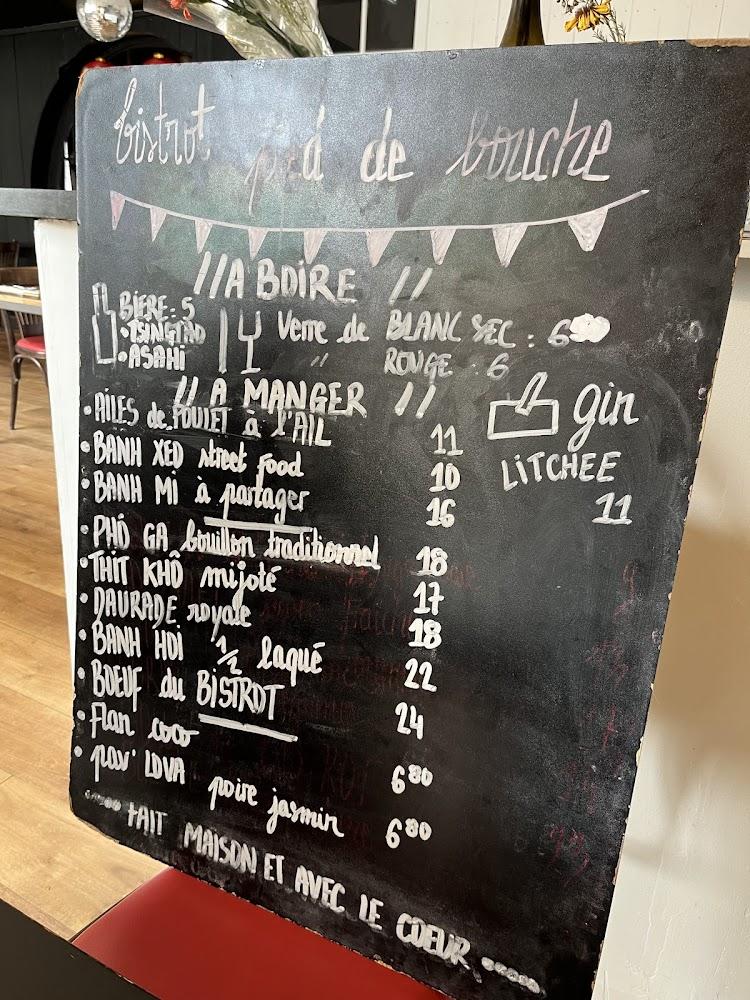 bistrot pied de bouche
// A BOIRE //
BIERE: 5
• TSINGTAO
• ASAHI
Verre de BLANC SEC : 6
" ROUGE : 6
// A MANGER //
• AILES de POULET à l'AIL 11
• BANH XEO street food 10
• BANH MI à partager 16
• PHO GA bouillon traditionnel 18
• THIT KHÔ mijoté 17
• DAURADE royale 18
• BANH HOI 1/2 laqué 22
• BOEUF du BISTROT 24
• Flan coco 6 80
• pav' LOVA poire jasmin 6 80
gin
LITCHEE
11
FAIT MAISON ET AVEC LE COEUR